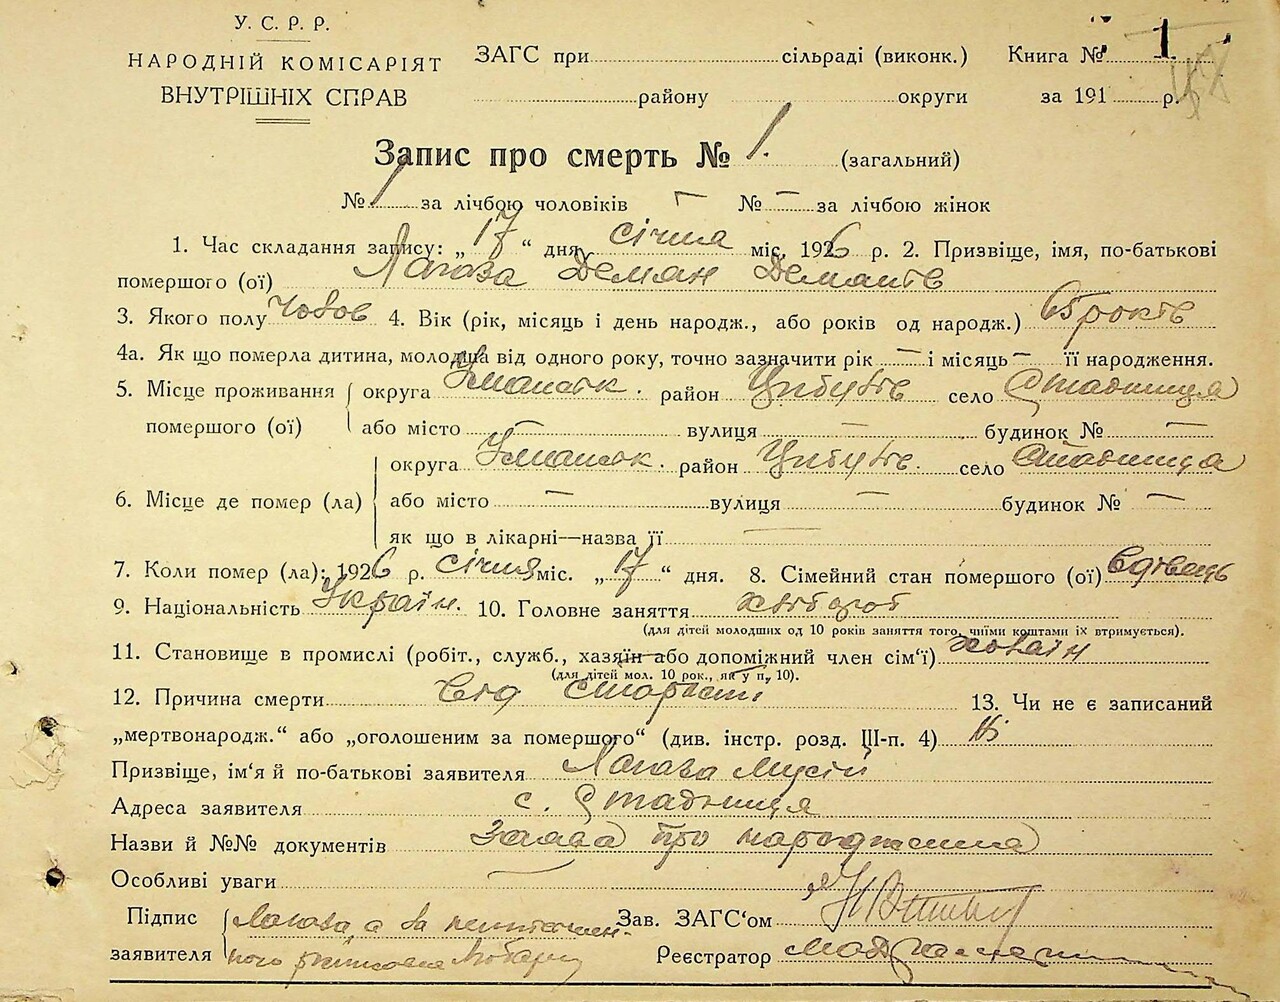 У. С. Р. Р.
НАРОДНІЙ КОМІСАРІЯТ
ВНУТРІШНІХ СПРАВ
ЗАГС при сільраді (виконк.) Книга № 1
району округи за 191 р.
Запис про смерть № 1. (загальний)
№ 1 за лічбою чоловіків — № — за лічбою жінок
1. Час складання запису: „ 17 “ дня січня міс. 1926 р. 2. Призвіще, імя, по-батькові
помершого (ої) Лагоза Демян
3. Якого полу 4. Вік (рік, місяць і день народж., або років од народж.) 65 років
4а. Як що померла дитина, молодша від одного року, точно зазначити рік — і місяць — її народження.
5. Місце проживання округа район Цибулів село Стадниця
помершого (ої) або місто — вулиця — будинок № —
округа район Цибулів. село Стадниця
6. Місце де помер (ла) або місто — вулиця — будинок № —
як що в лікарні—назва її —
7. Коли помер (ла): 1926 р. січня міс. „ 17 “ дня. 8. Сімейний стан помершого (ої) вдівець
9. Національність Україн. 10. Головне заняття хлібороб
(для дітей молодших од 10 років заняття того, чиїми коштами їх втримується).
11. Становище в промислі (робіт., служб., хазяїн або допоміжний член сім‘ї) хазяїн
(для дітей мол. 10 рок., як у п. 10).
12. Причина смерти від старости 13. Чи не є записаний
„мертвонародж.“ або „оголошеним за помершого“ (див. інстр. розд. III-п. 4) Ні
Призвіще, ім‘я й по-батькові заявителя Лагоза Мусій
Адреса заявителя с. Стадниця
Назви й №№ документів Заява про народження
Особливі уваги —
Підпис Лагоза, а за Зав. ЗАГС‘ом
заявителя Реєстратор